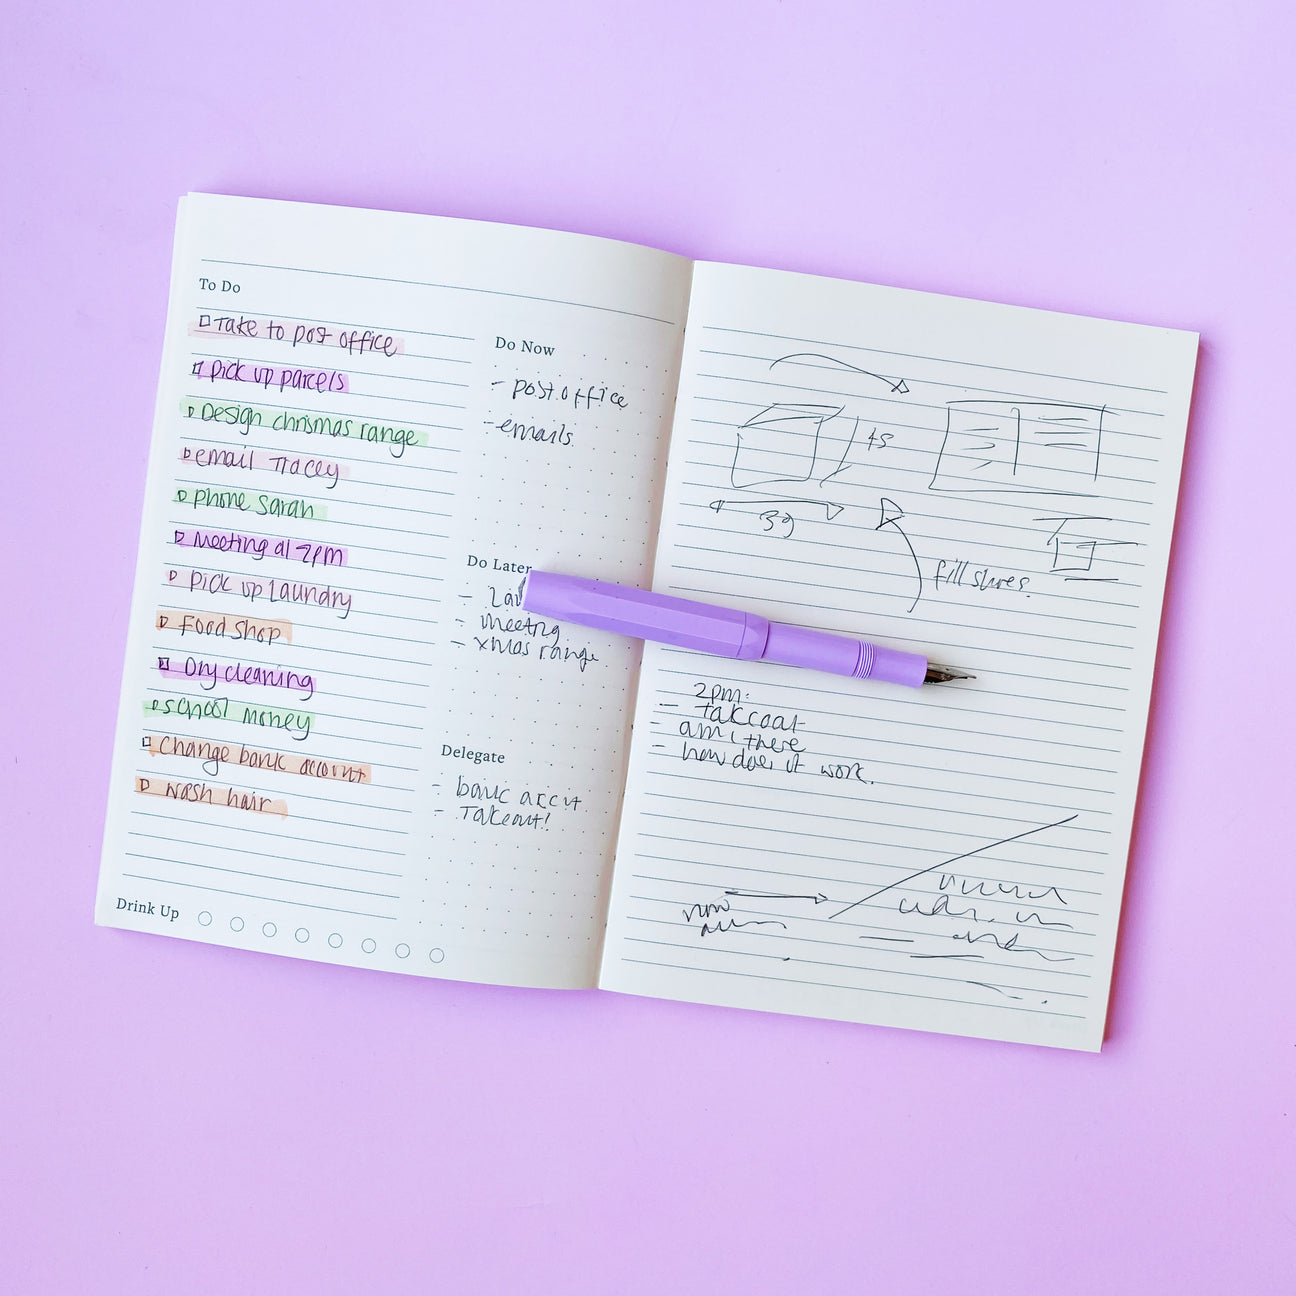 To Do
Take to post office
pick up parcels
Design chrismas range
email Tracey
phone Sarah
Meeting at 2pm
pick up Laundry
Food Shop
Dry cleaning
school money
Change bank account
wash hair
Drink Up
Do Now
- post office
- emails
Do Later
-
- meeting
- xmas range
Delegate
- bank acc it
- Takeout!
45
39
fill shives?
2pm:
-
- am i there
- how does it work.